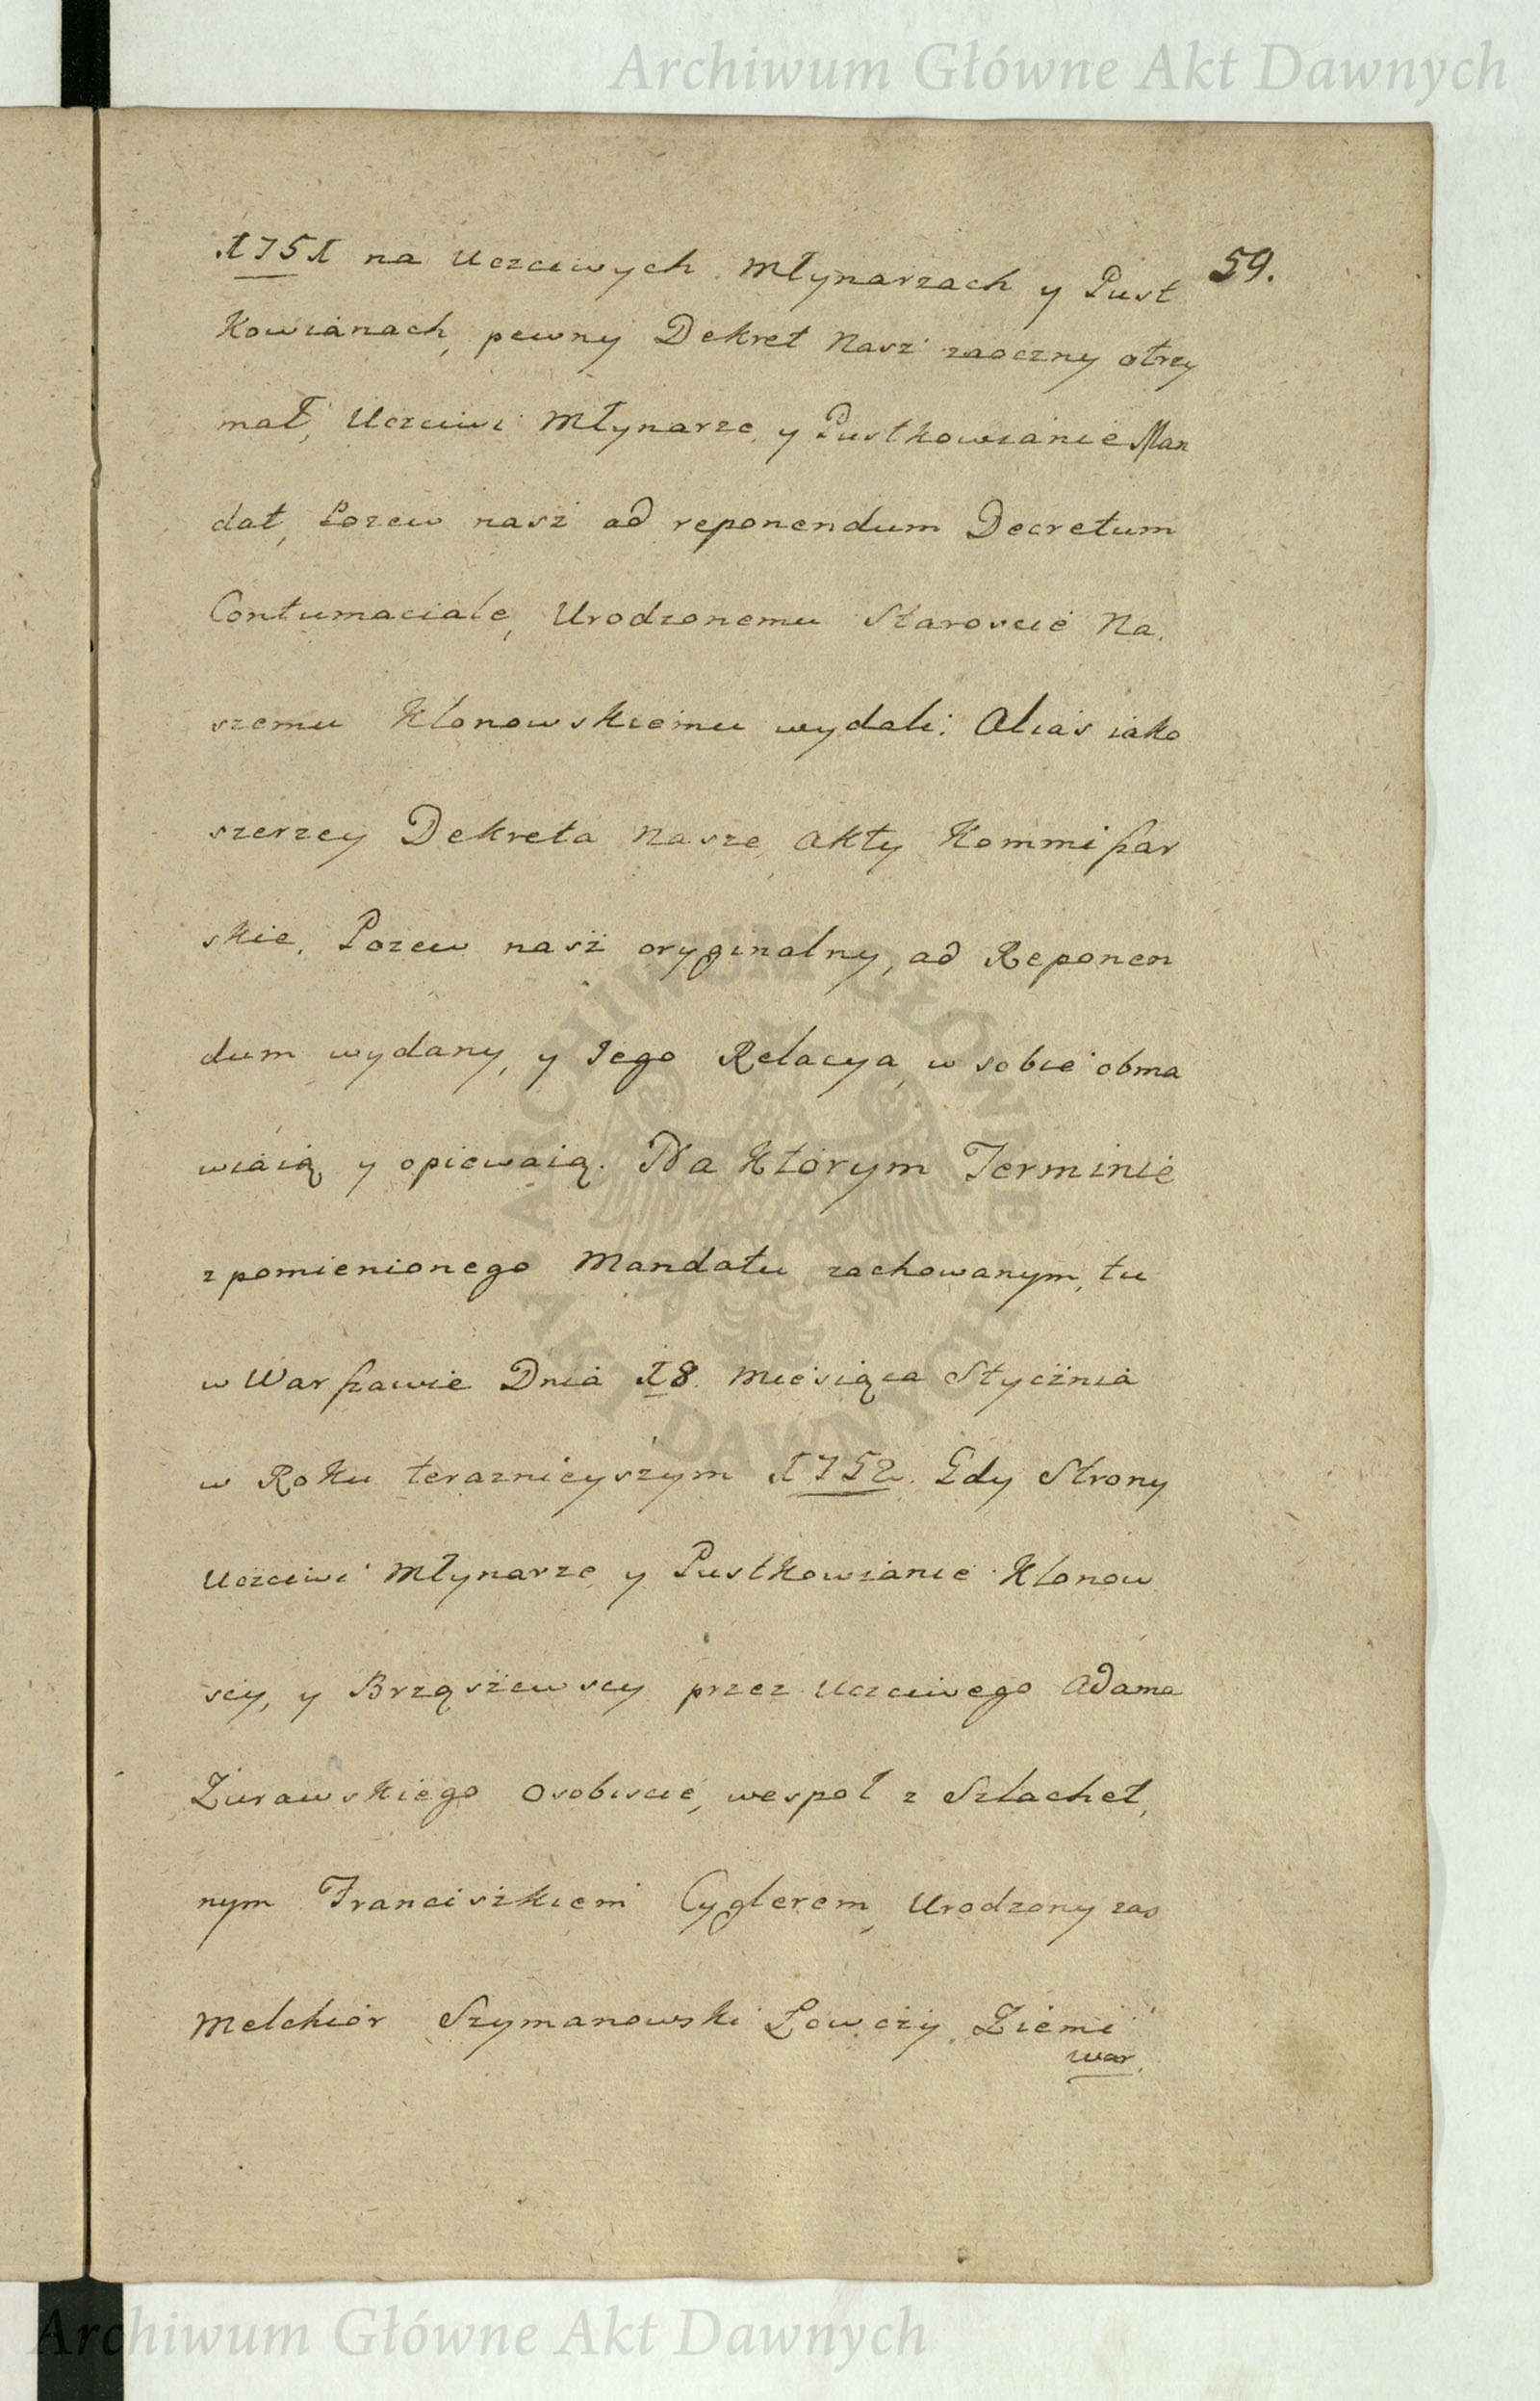 Archiwum Główne Akt Dawnych
59.
1751 na Uczciwych Młynarzach y Pust
Kowianach, pewny Dekret Nasz zaoczny otrzy
mał, Uczciwi Młynarze, y Pustkowianie Man
dat, Pozew nasz ad reponendum Decretum
Contumaciale, Urodzonemu Staroscie Na,
szemu Klonowskiemu wydali: Alias iako
szerzey Dekreta Nasze, Akty Kommißar
skie, Pozew nasz oryginalny, ad Reponen
dum wydany, y Jego Relacya, w sobie obma
wiaią y opiewaią. Na Którym Terminie
z pomienionego Mandatu zachowanym, tu
w Warßawie Dnia 18. Miesiąca Stycznia
w Roku teraznieyszym 1752. Gdy Strony
Uczciwi Młynarze, y Pustkowianie Klonow
scy, y Brząszewscy przez Uczciwego Adama
Żurawskiego Osobiscie, wespoł z Szlachet,
nym Franciszkiem Cyglerem, Urodzony zas
Melchior Szymanowski Łowczy Ziemi
War.
ARCHIWUM GŁÓWNE AKT DAWNYCH
Archiwum Główne Akt Dawnych